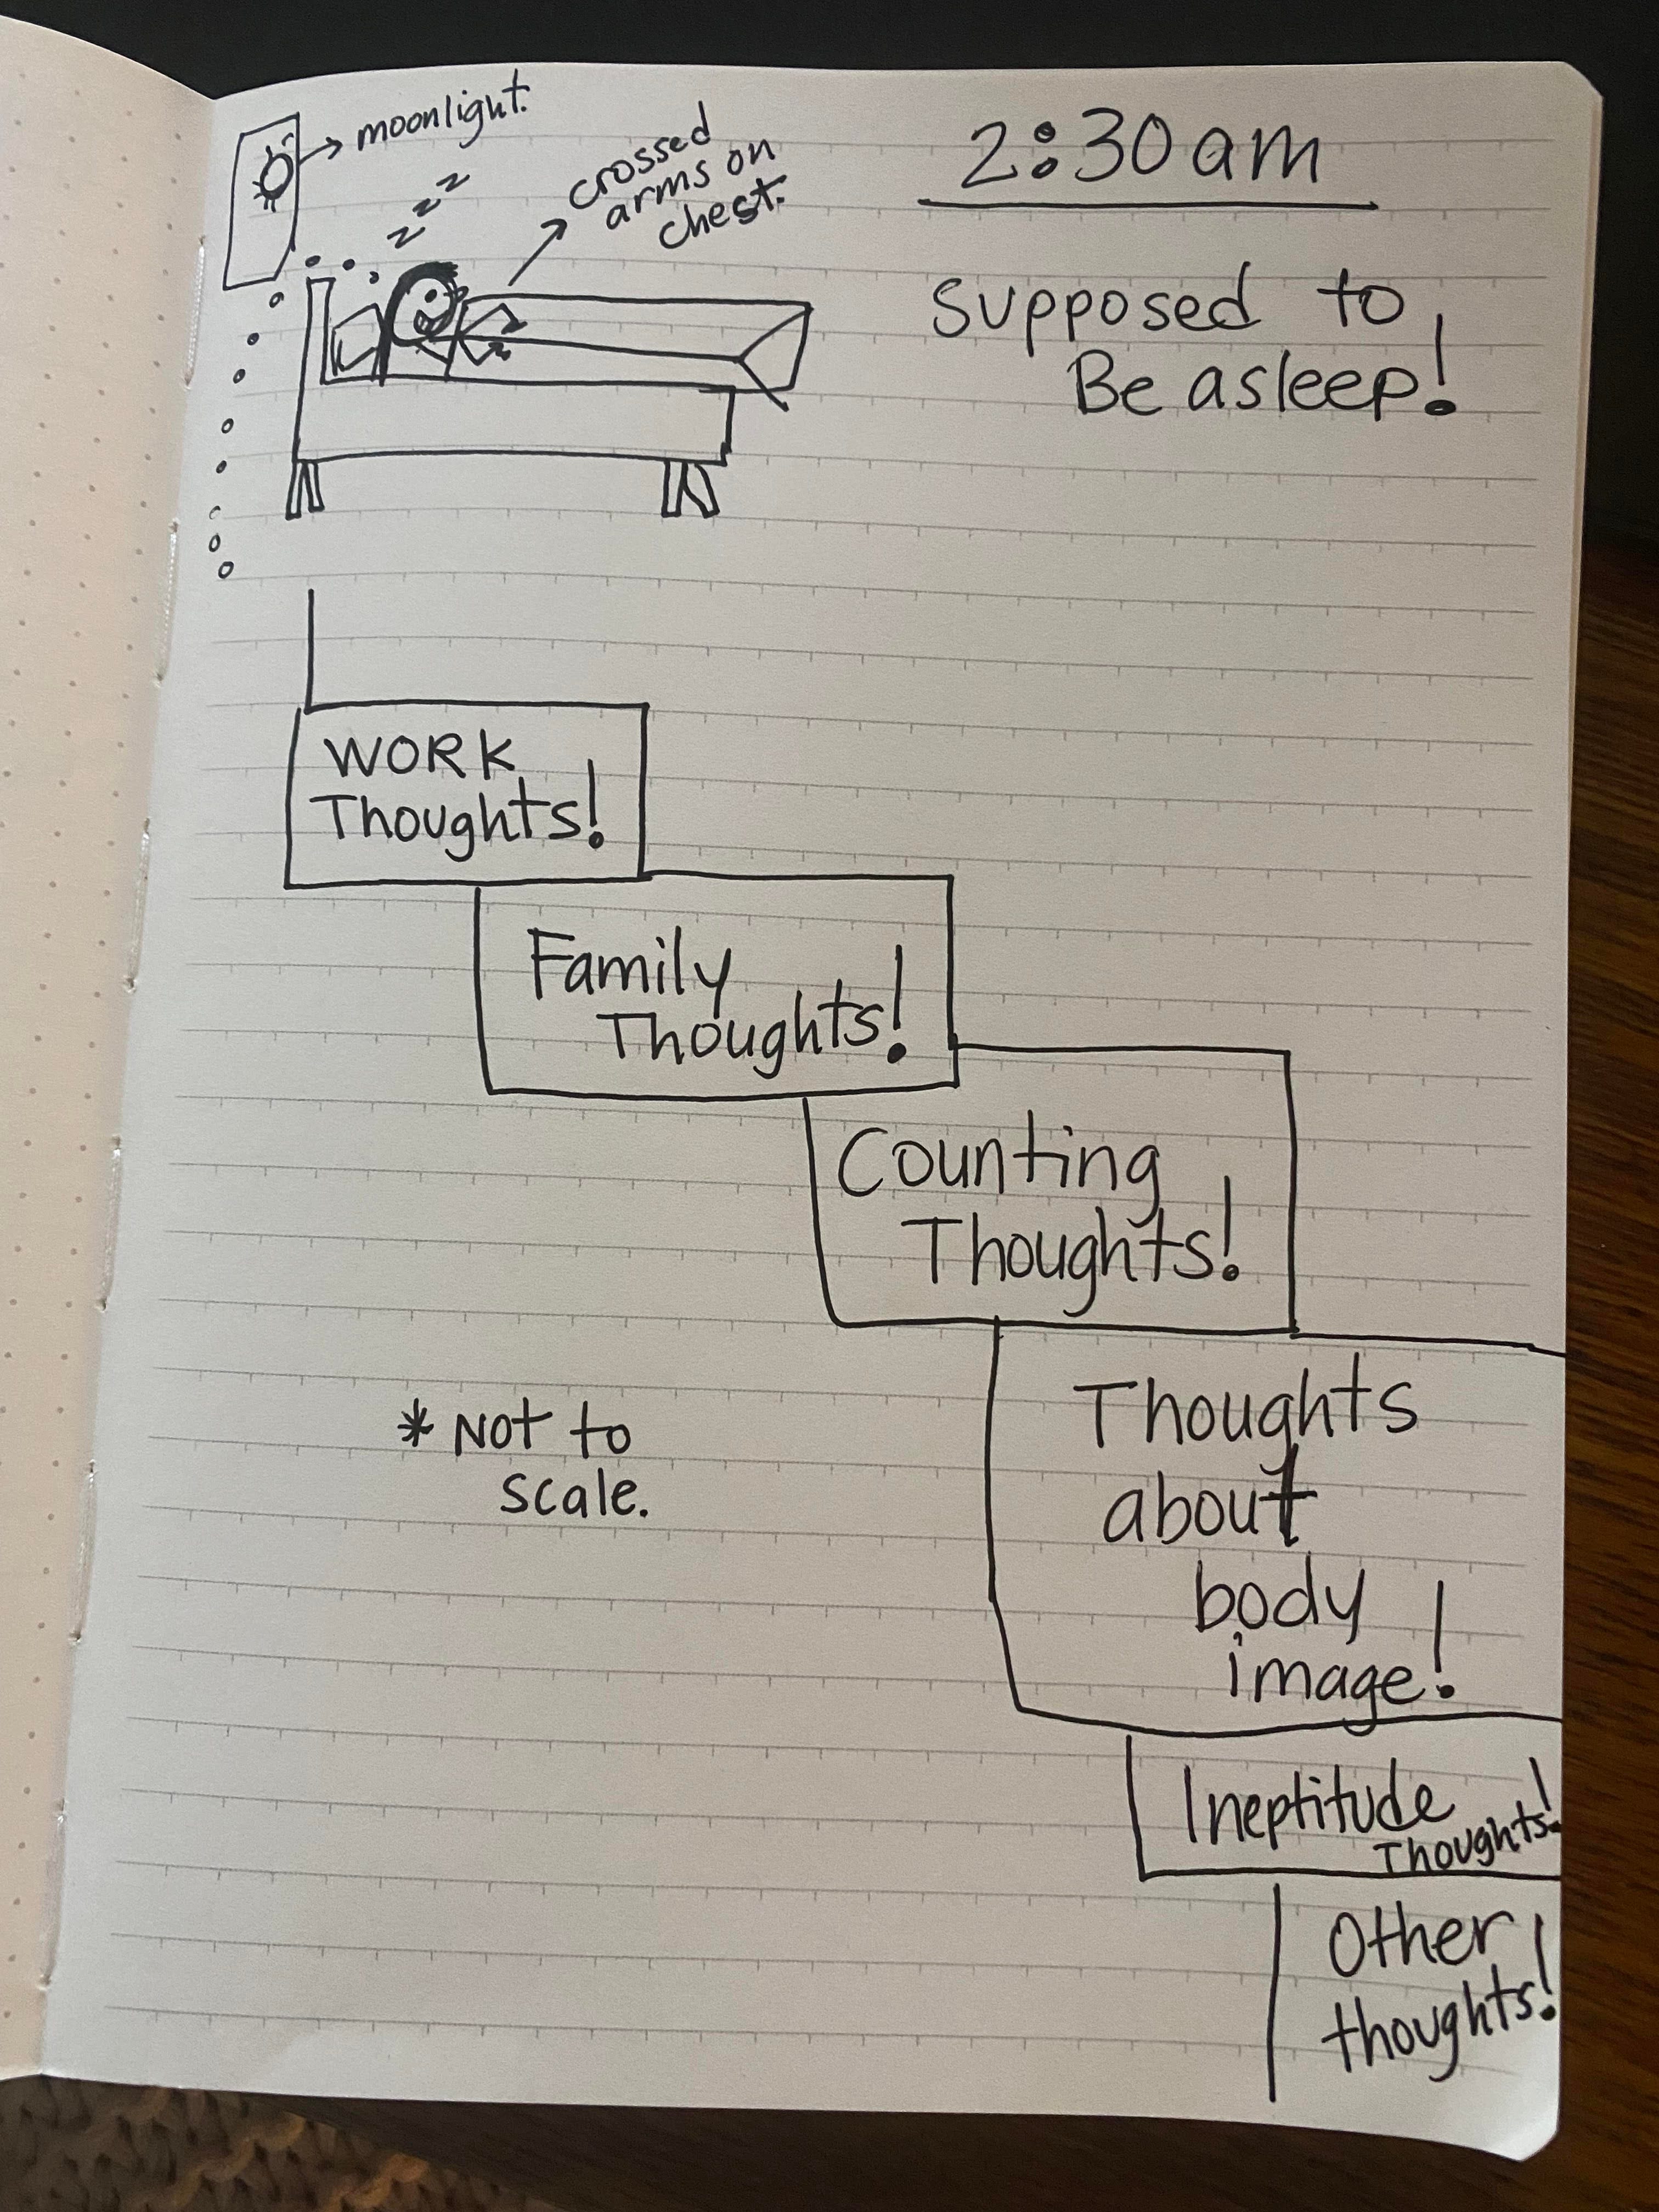 2:30am
moonlight.
crossed
arms on
chest.
z z z
Supposed to
Be asleep!
WORK
Thoughts!
Family
Thoughts!
Counting
Thoughts!
Thoughts
about
body
image!
* Not to
scale.
Ineptitude
Thoughts!
Other
thoughts!